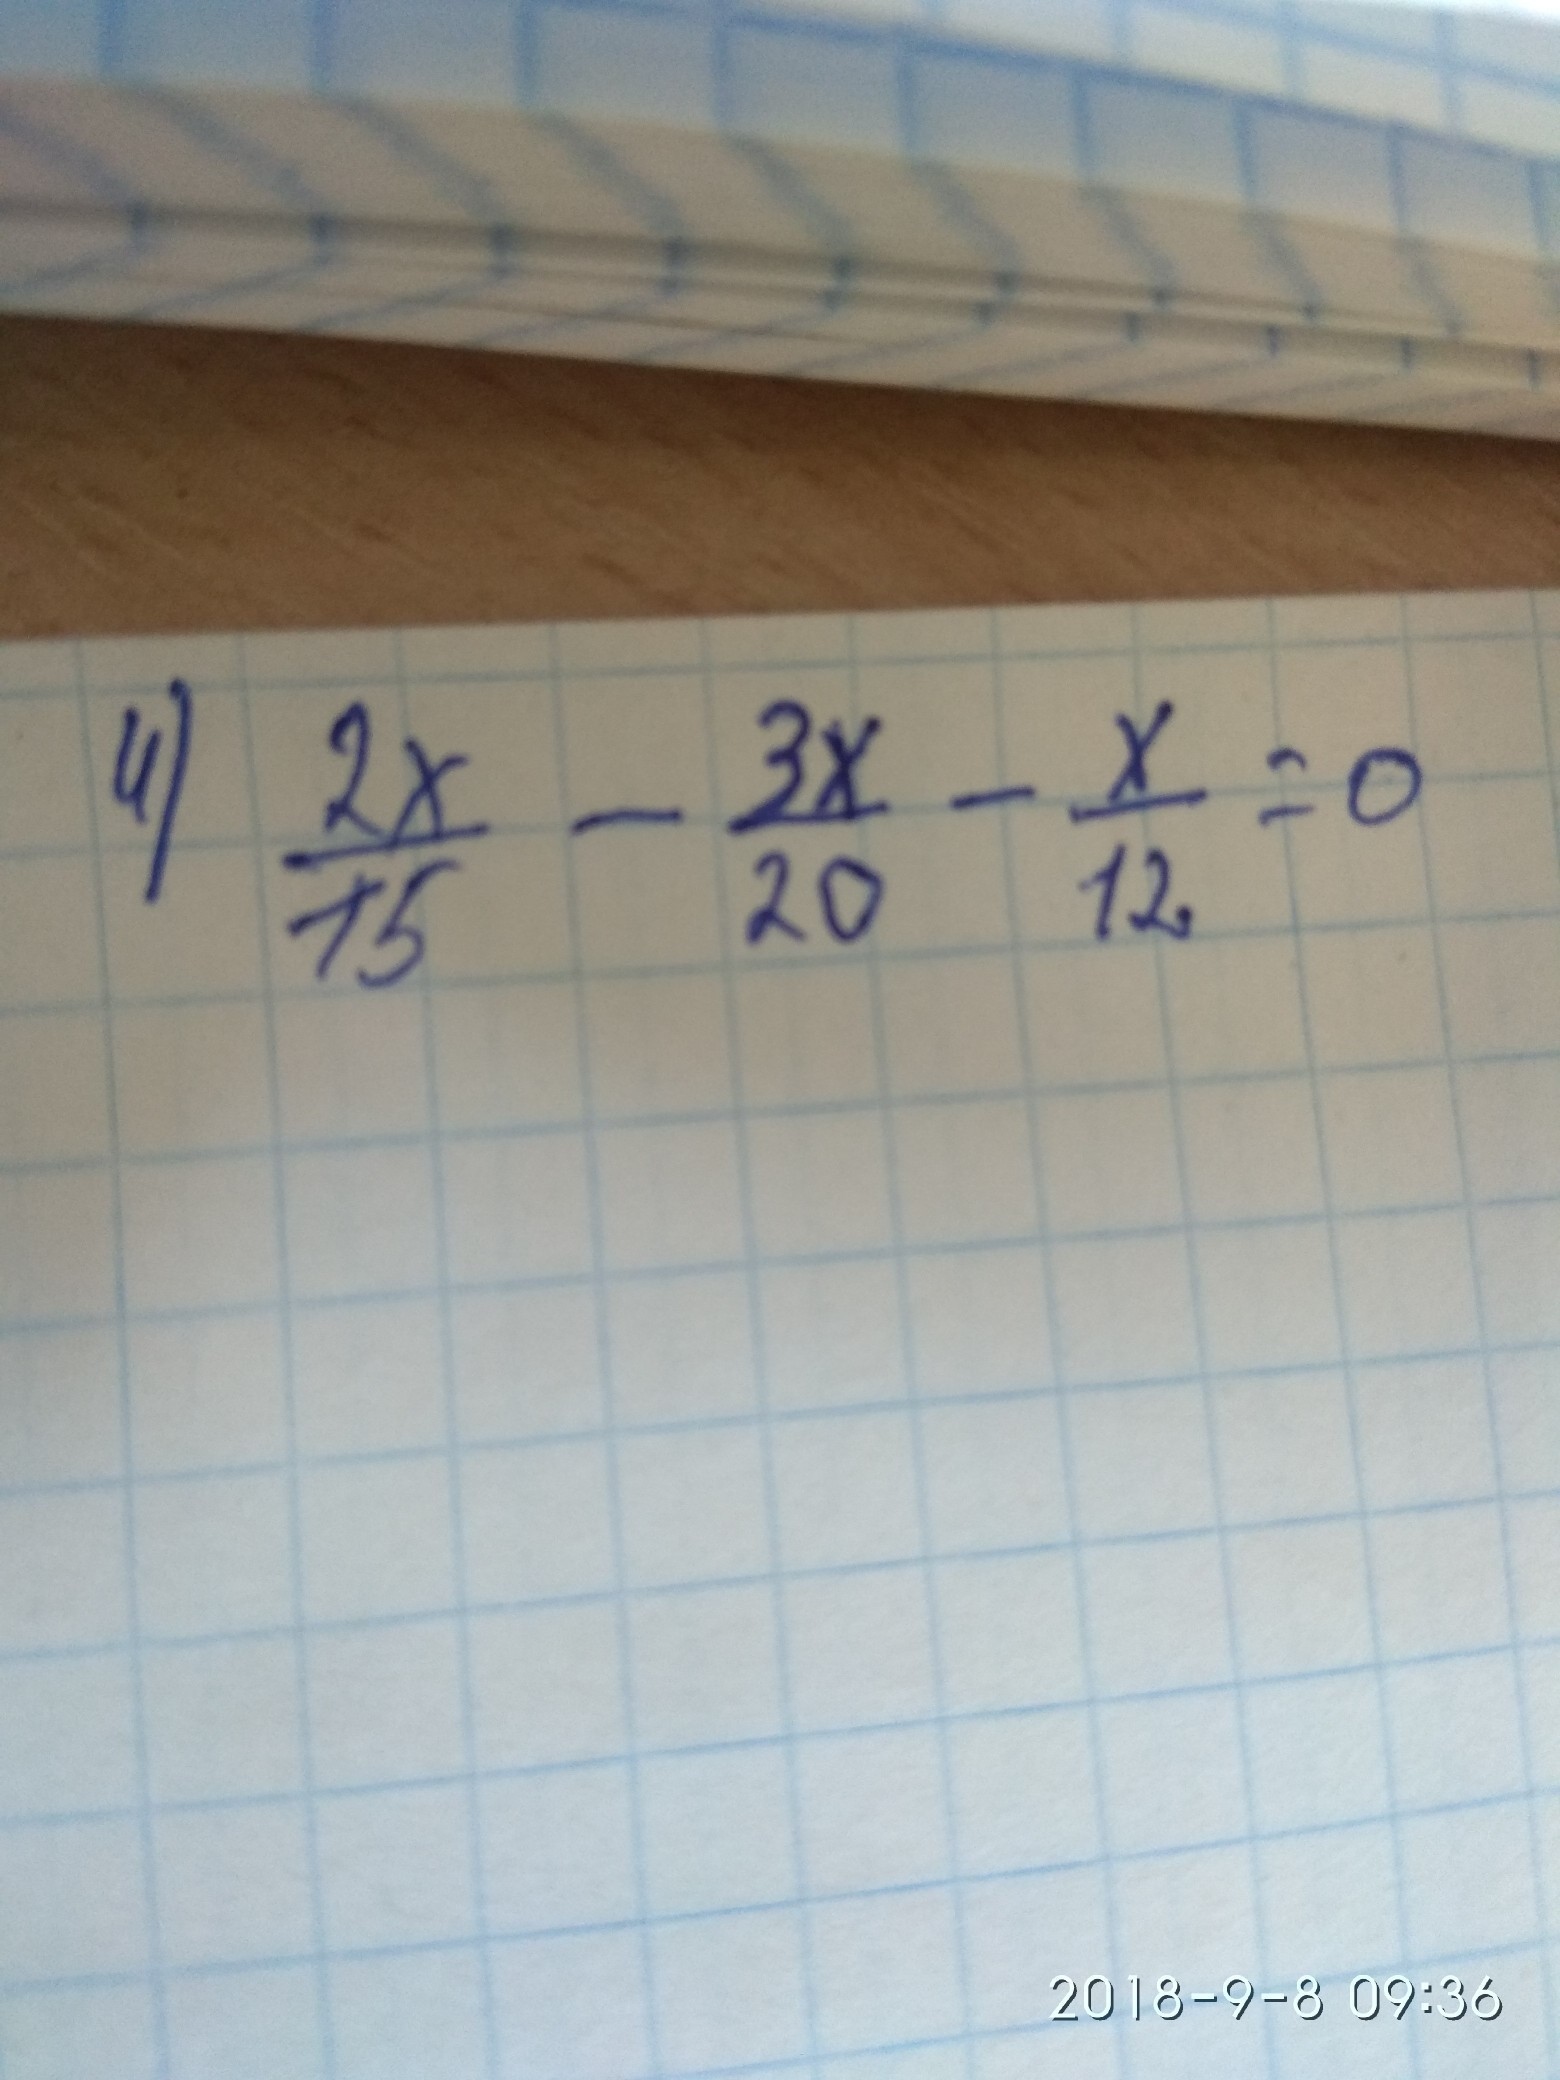 4) 2x/15 - 3x/20 - x/12 = 0
2018-9-8 09:36